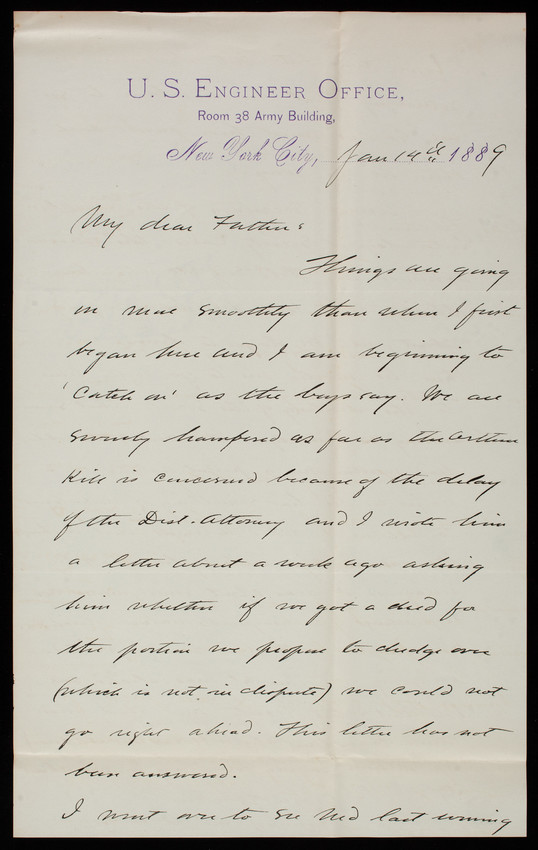 U. S. ENGINEER OFFICE,
Room 38 Army Building,
New York City, Jan 14th 1889
My dear Father:
Things are going
on more smoothly than when I first
began here and I am beginning to
'catch on' as the boys say. We are
severely hampered as far as the Arthur
Kill is concerned because of the delay
of the Dist. Attorney and I wrote him
a letter about a week ago asking
him whether if we got a deed for
the portion we propose to dredge over
(which is not in dispute) we could not
go right ahead. This letter has not
been answered.
I went over to see Ned last evening